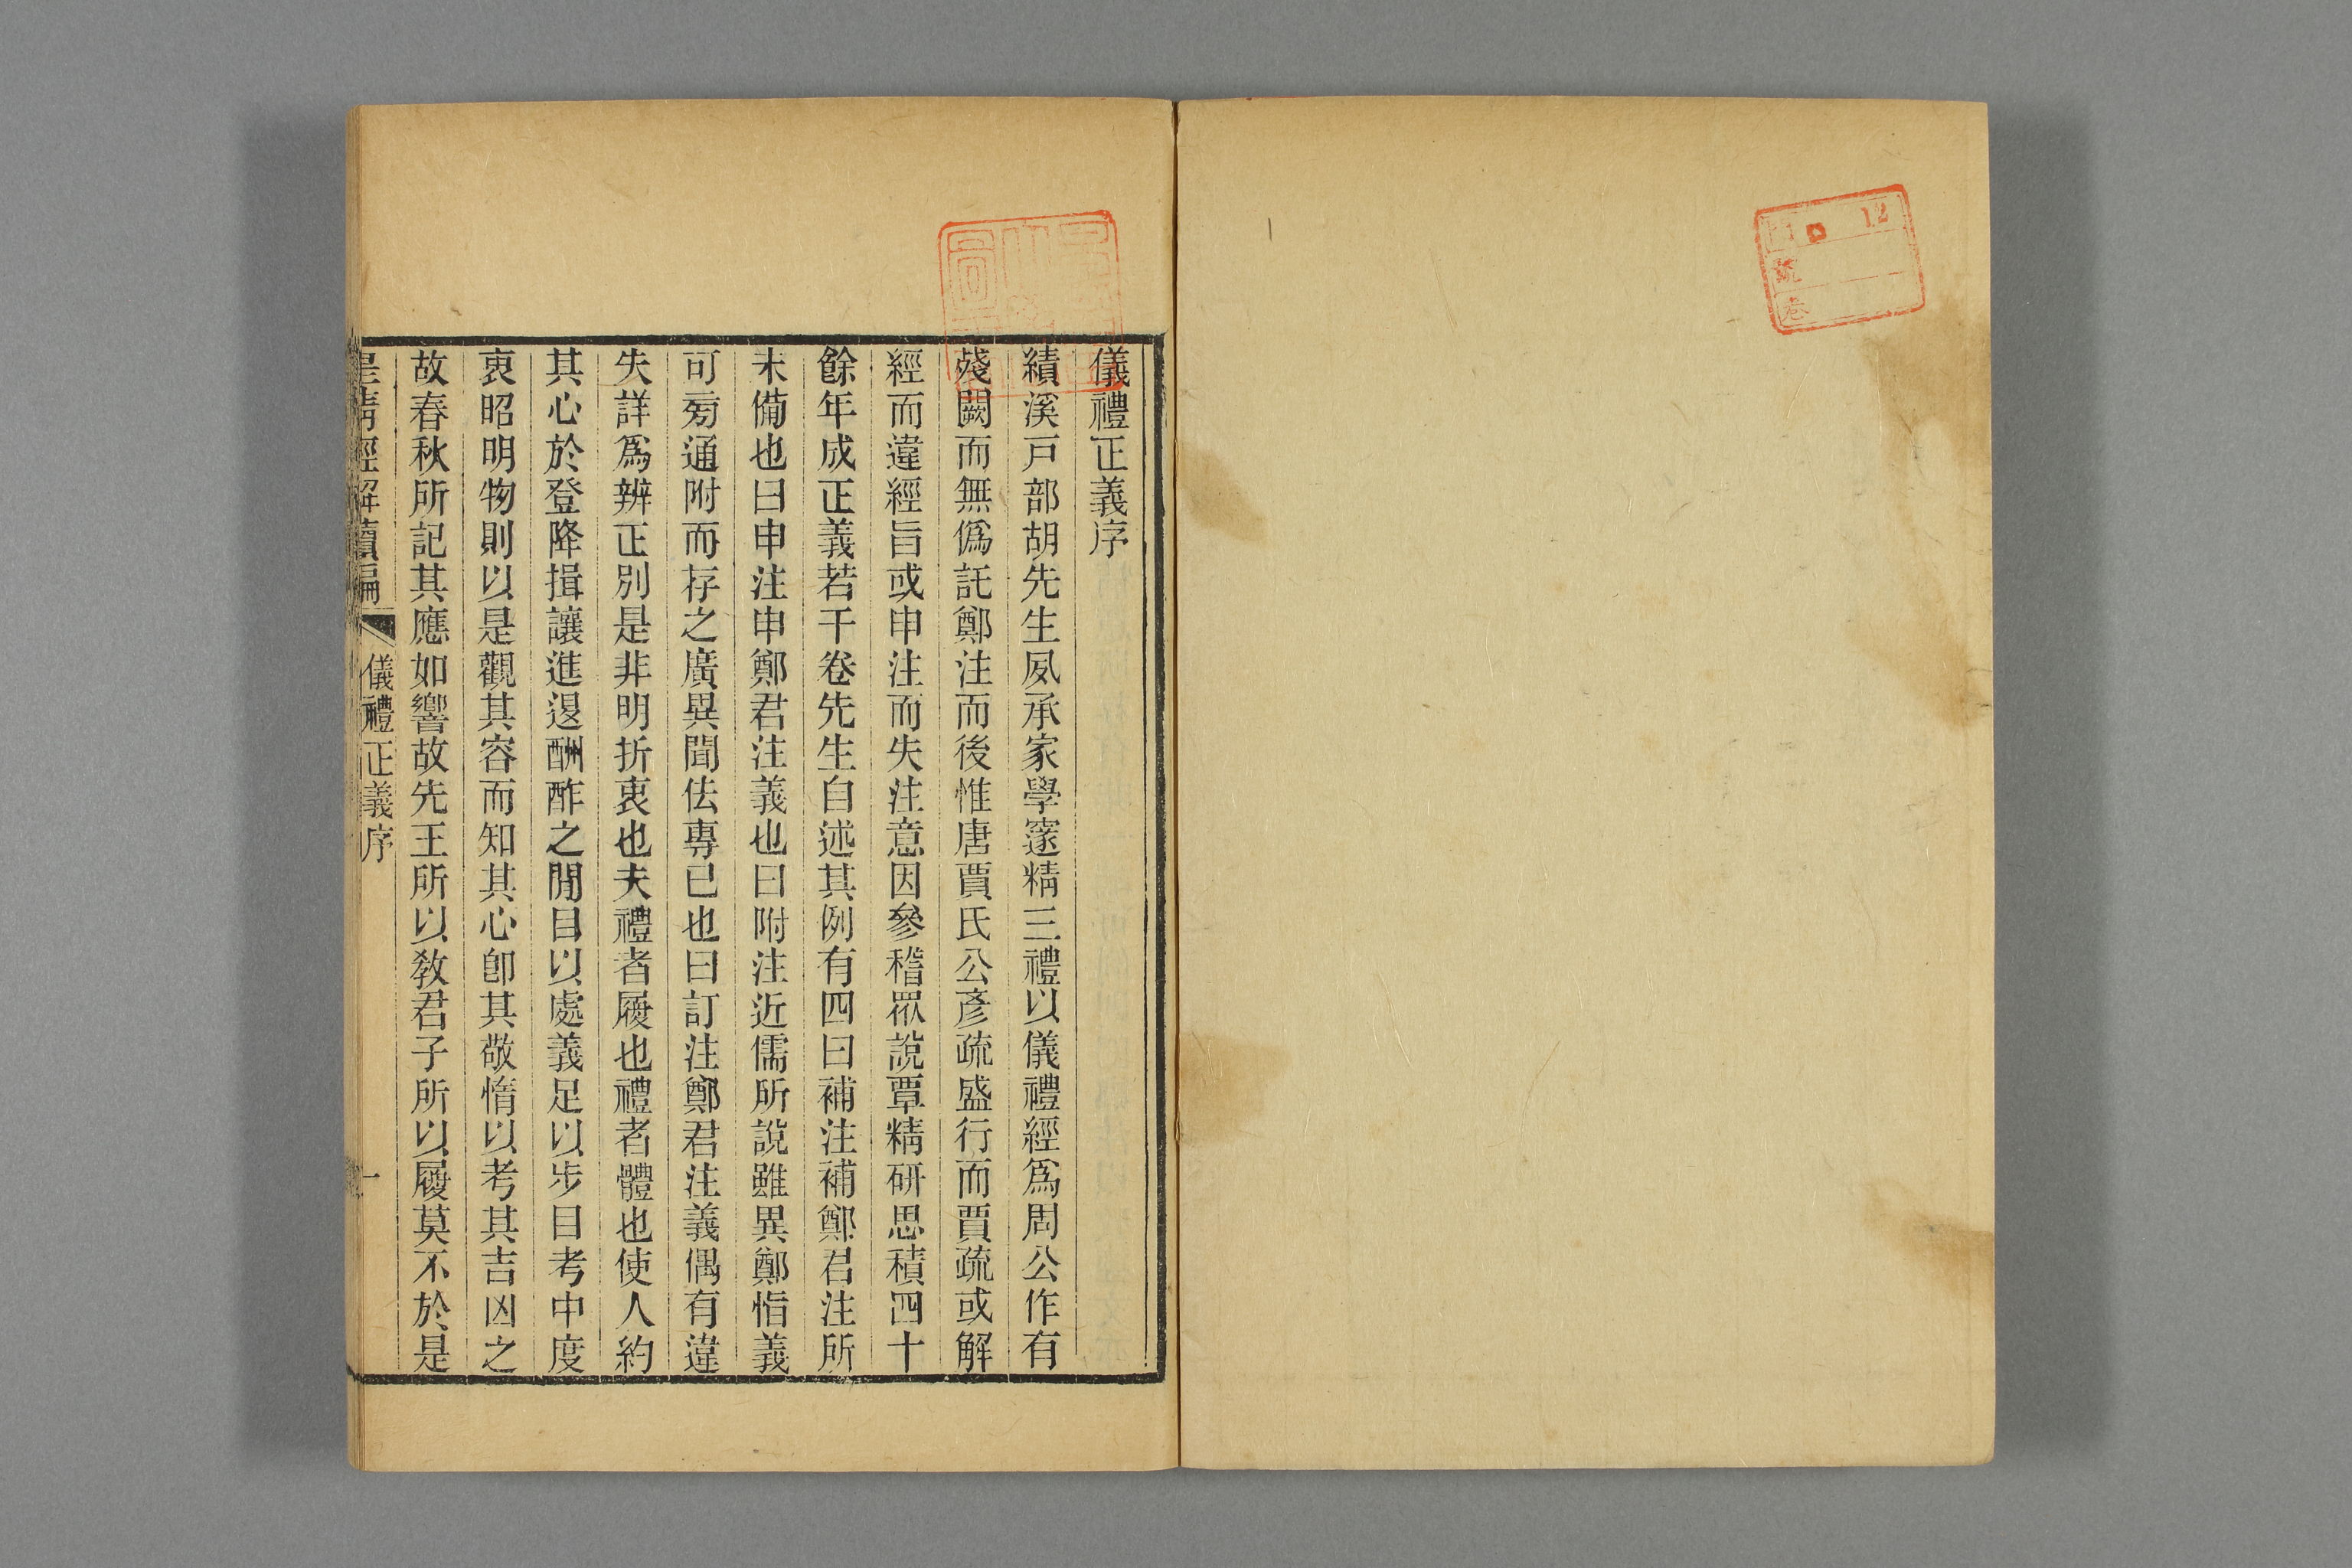 儀禮正義序
績溪戸部胡先生夙承家學邃精三禮以儀禮經爲周公作有
殘闕而無僞託鄭注而後惟唐賈氏公彥疏盛行而賈疏或解
經而違經旨或申注而失注意因參稽眾說覃精研思積四十
餘年成正義若干卷先生自述其例有四曰補注補鄭君注所
未備也曰申注申鄭君注義也曰附注近儒所說雖異鄭恉義
可旁通附而存之廣異聞佉專己也曰訂注鄭君注義偶有違
失詳爲辨正別是非明折衷也夫禮者履也禮者體也使人約
其心於登降揖讓進退酬酢之閒目以處義足以步目考中度
衷昭明物則以是觀其容而知其心卽其敬惰以考其吉凶之
故春秋所記其應如響故先王所以敎君子所以履莫不於是
皇清經解續編 儀禮正義序 一
12
號
卷